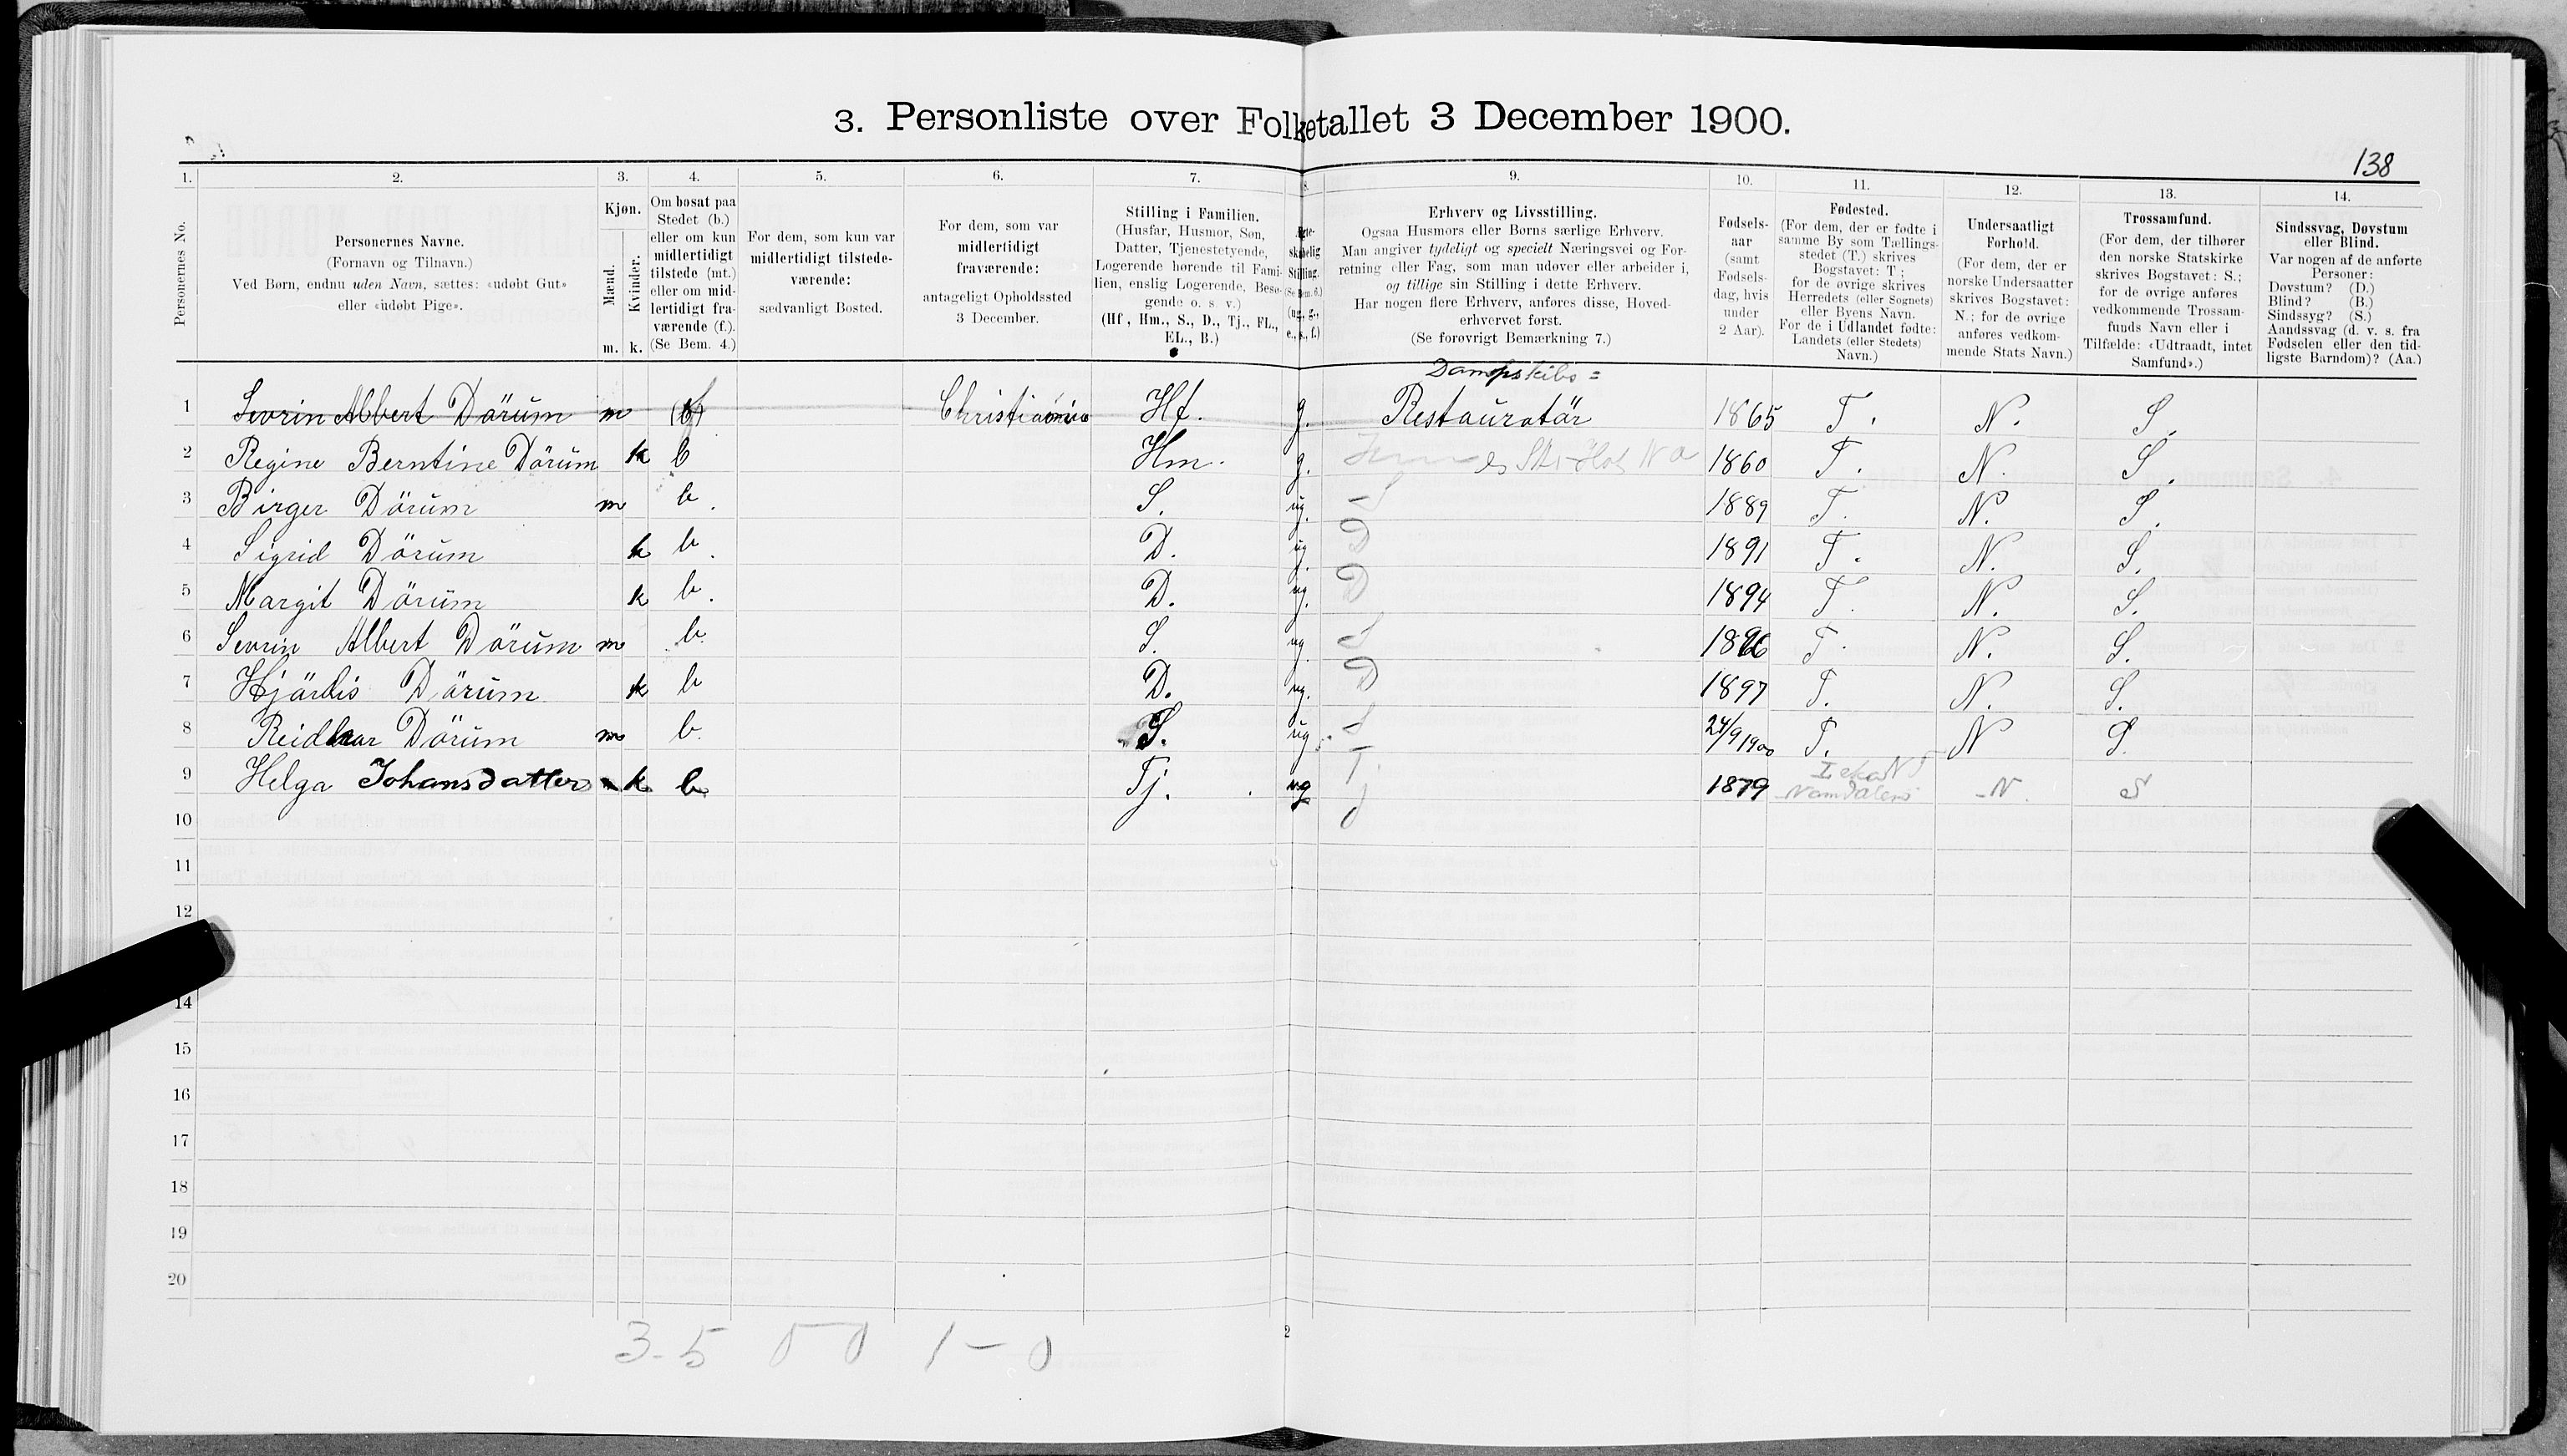 3. Personliste over Folketallet 3 December 1900.
138
1. 2. 3. 4. 5. 6. 7. 8. 9. 10. 11. 12. 13. 14.
Personernes No.
Personernes Navne.
(Fornavn og Tilnavn.)
Ved Børn, endnu uden Navn, sættes: «udøbt Gut»
eller «udøbt Pige».
Kjøn.
Mænd.
Kvinder.
m. k.
Om bosat paa
Stedet (b.)
eller om kun
midlertidigt
tilstede (mt.)
eller om mid-
lertidigt fra-
værende (f.).
(Se Bem. 4.)
For dem, som kun var
midlertidigt tilstede-
værende:
sædvanligt Bosted.
For dem, som var
midlertidigt
fraværende:
antageligt Opholdssted
3 December.
Stilling i Familien.
(Husfar, Husmor, Søn,
Datter, Tjenestetyende,
Logerende hørende til Fami-
lien, enslig Logerende, Besø-
gende o. s. v.)
(Hf, Hm., S., D., Tj., FL.,
EL., B.)
skabelig
Stilling.
(Se Bem. 6.)
(ug., g.,
e., s., f.)
Erhverv og Livsstilling.
Ogsaa Husmors eller Børns særlige Erhverv.
Man angiver tydeligt og specielt Næringsvei og For-
retning eller Fag, som man udøver eller arbeider i,
og tillige sin Stilling i dette Erhverv.
Har nogen flere Erhverv, anføres disse, Hoved-
erhvervet først.
(Se forøvrigt Bemærkning 7.)
Fødsels-
aar
(samt
Fødsels-
dag, hvis
under
2 Aar).
Fødested.
(For dem, der er fødte i
samme By som Tællings-
stedet (T.) skrives
Bogstavet: T;
for de øvrige skrives
Herredets (eller Sognets)
eller Byens Navn.
For de i Udlandet fødte:
Landets (eller Stedets)
Navn.)
Undersaatligt
Forhold.
(For dem, der er
norske Undersaatter
skrives Bogstavet:
N.; for de øvrige
anføres vedkom-
mende Stats Navn.)
Trossamfund.
(For dem, der tilhører
den norske Statskirke
skrives Bogstavet: S.;
for de øvrige anføres
vedkommende Trossam-
funds Navn eller i
Tilfælde: «Udtraadt, intet
Samfund».)
Sindssvag, Døvstum
eller Blind.
Var nogen af de anførte
Personer:
Døvstum? (D.)
Blind? (B.)
Sindssyg? (S.)
Aandssvag (d. v. s. fra
Fødselen eller den tid-
ligste Barndom)? (Aa.)
Dampskibs=
1 Sevrin Albert Dörum m Christiania Hf. g. Restauratör 1865 T. N. S.
2 Regine Berntine Dörum k b Hm. g. 1860 T. N. S.
3 Birger Dörum m b. S. ug. S 1889 T. N. S.
4 Sigrid Dörum k b. D. ug. D 1891 T. N. S.
5 Margit Dörum k b. D. ug. D 1894 T. N. S.
6 Sevrin Albert Dörum m b. S. ug. S 1896 T. N. S.
7 Hjärdis Dörum k b D. ug. D 1897 T. N. S.
8 Reidar Dörum m b. S. ug. S 24/9 1900 T. N S.
9 Helga Johansdatter k b. Tj. ug Tj 1879 Leka N T N. S
Namdalens
10
11
12
14
15
16
17
18
19
20
3-5 0 0 1-0
2